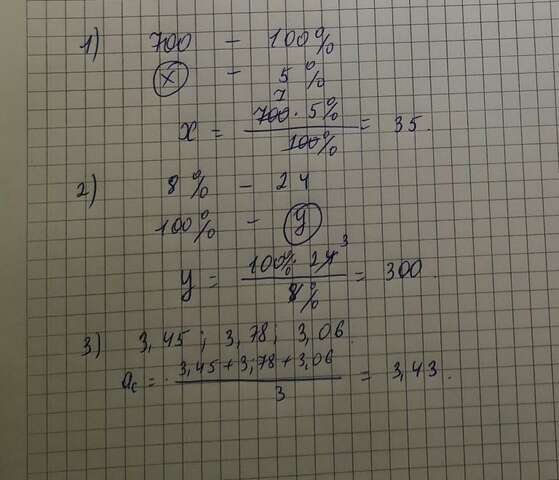 1) 700 - 100%
x - 5%
x = 700 7 · 5% / 100% = 35.
2) 8% - 24
100% - y
y = 100% · 24 3 / 8% = 300.
3) 3,45 ; 3,78 ; 3,06.
ac = 3,45 + 3,78 + 3,06 / 3 = 3,43.